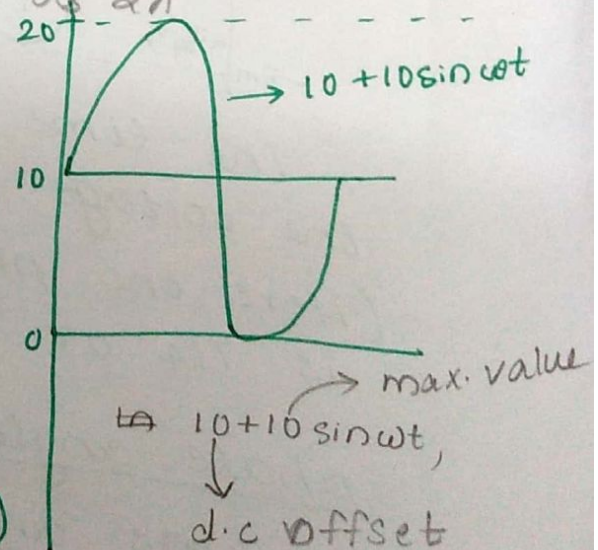 20
10 + 10 sin ωt
10
0
max. value
10 + 10 sin ωt,
d.c offset